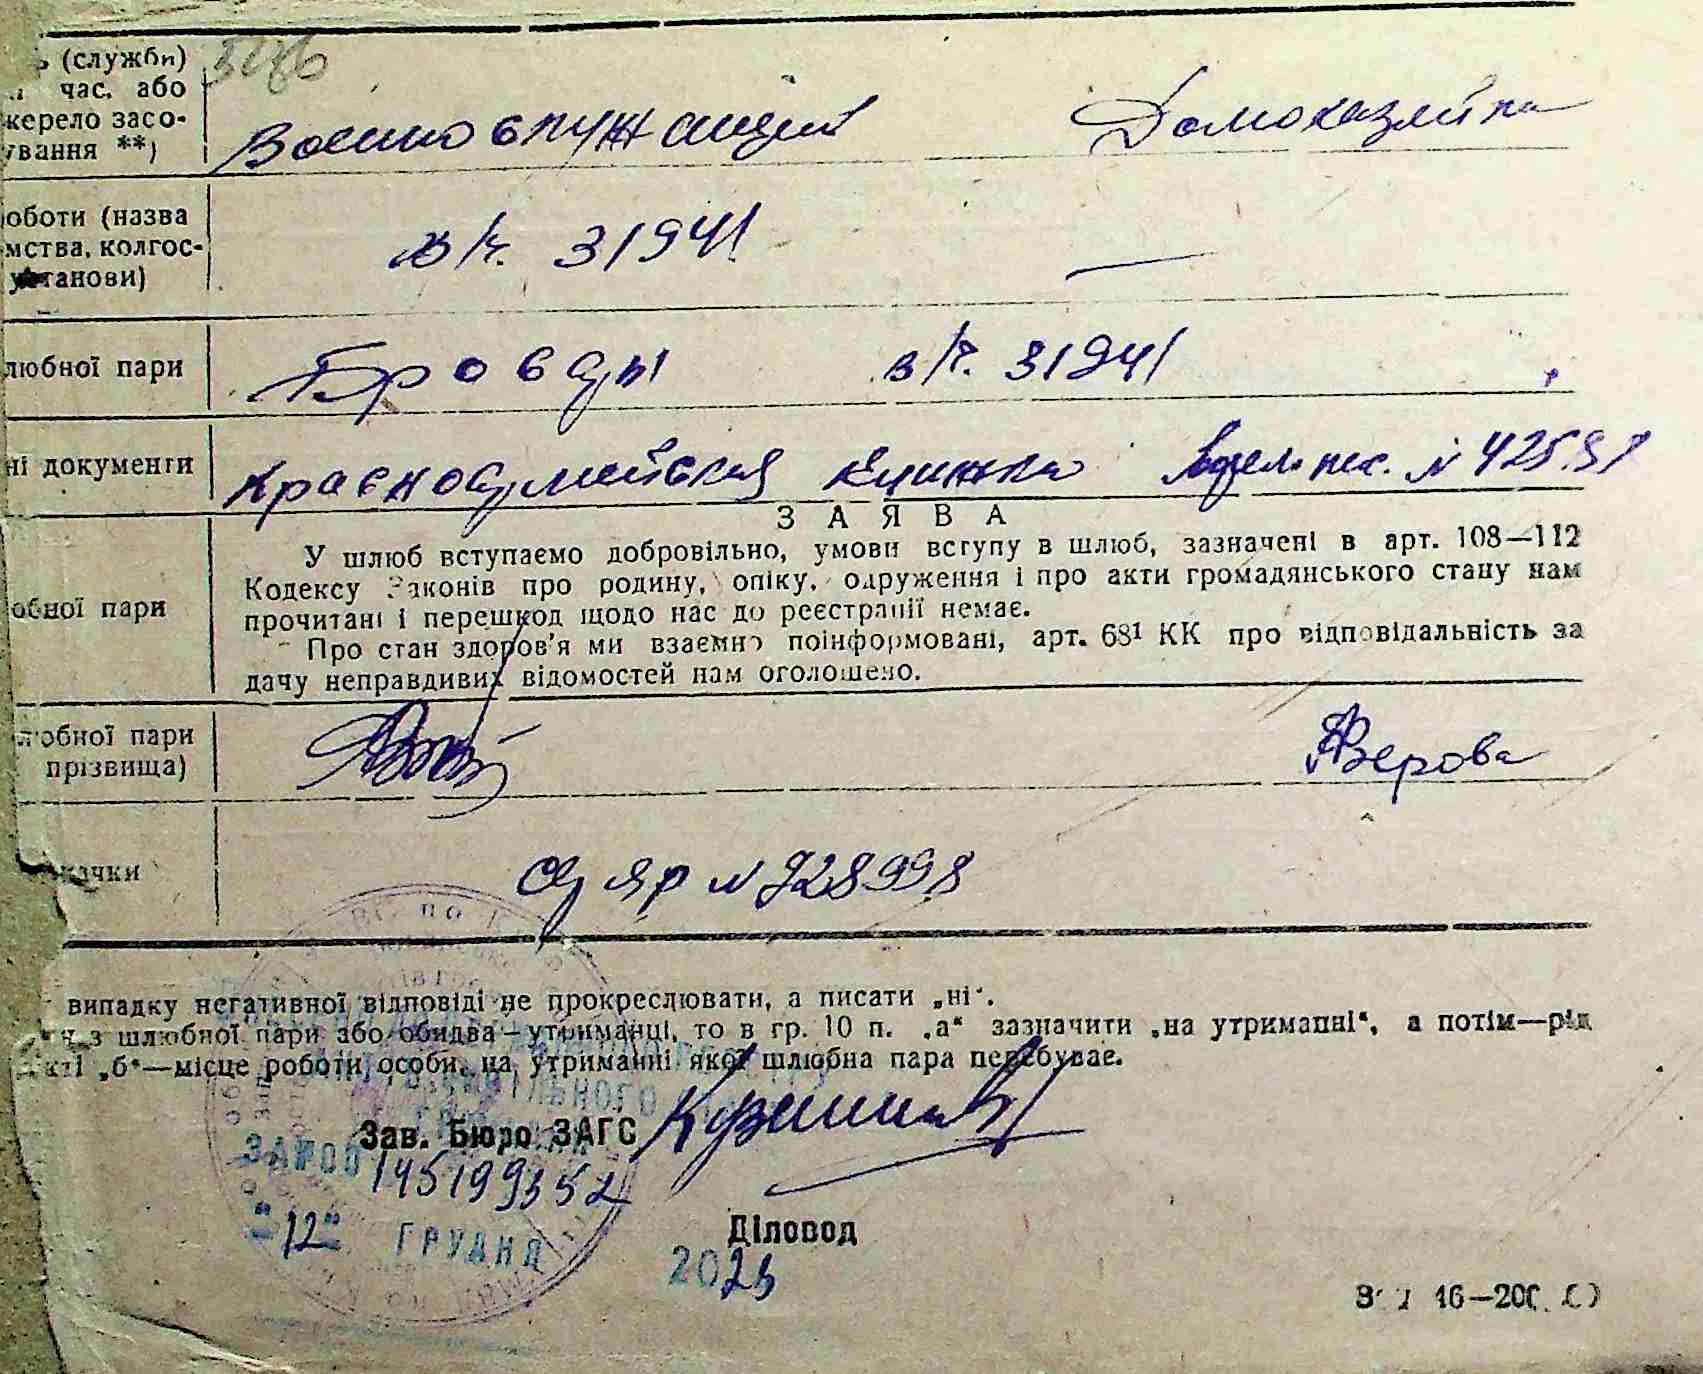 (служби)
час. або
жерело засо-
ування **)
Военнослужащий
Домохазяйка
оботи (назва
мства, колгос-
установи)
в/ч. 31941
—
любної пари
Бровары в/ч. 31941
ні документи
Красноармейская книжка
№ 42587
ЗАЯВА
У шлюб вступаємо добровільно, умови вступу в шлюб, зазначені в арт. 108—112
Кодексу Законів про родину, опіку, одруження і про акти громадянського стану нам
прочитані і перешкод щодо нас до реєстрації немає.
обної пари
Про стан здоров'я ми взаємно поінформовані, арт. 68¹ КК про відповідальність за
дачу неправдивих відомостей нам оголошено.
любної пари
прізвища)
Азерова
ачки
ЯР № 728998
випадку негативної відповіді не прокреслювати, а писати „ні“.
з шлюбної пари або обидва—утриманці, то в гр. 10 п. „а“ зазначити „на утриманні“, а потім—рід
кті „б“—місце роботи особи, на утриманні якої шлюбна пара перебуває.
Зав. Бюро ЗАГС
145199352
"12" ГРУДНЯ 2023
Діловод
16—200